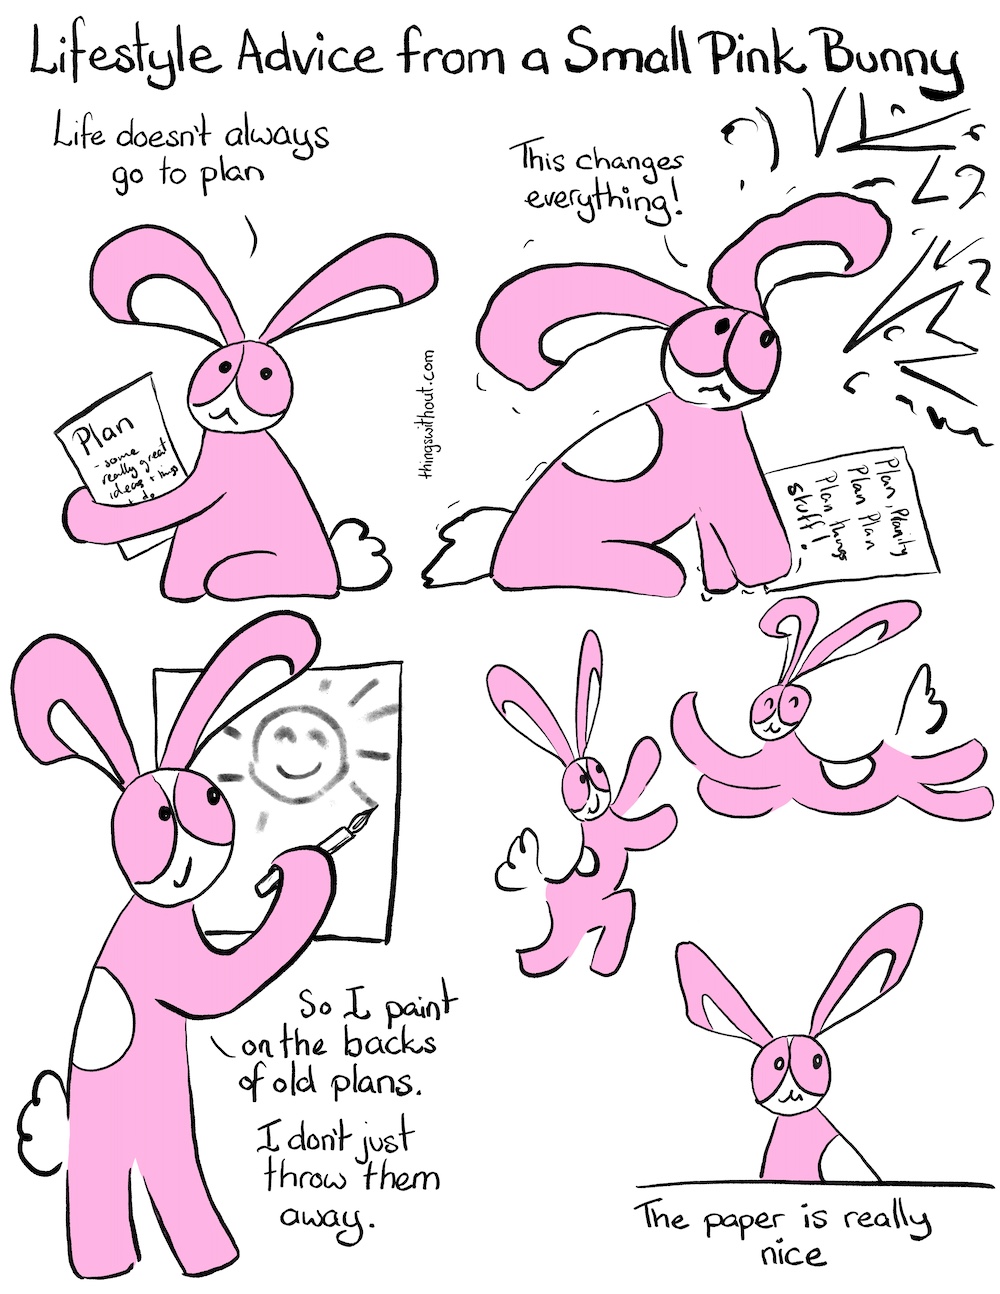 Lifestyle Advice from a Small Pink Bunny
Life doesn't always
go to plan
Plan
- some
really great
ideas + things
t do
This changes
everything!
Plan, Planity
Plan Plan
Plan things
stuff!
thingswithout.com
So I paint
on the backs
of old plans.
I don't just
throw them
away.
The paper is really
nice